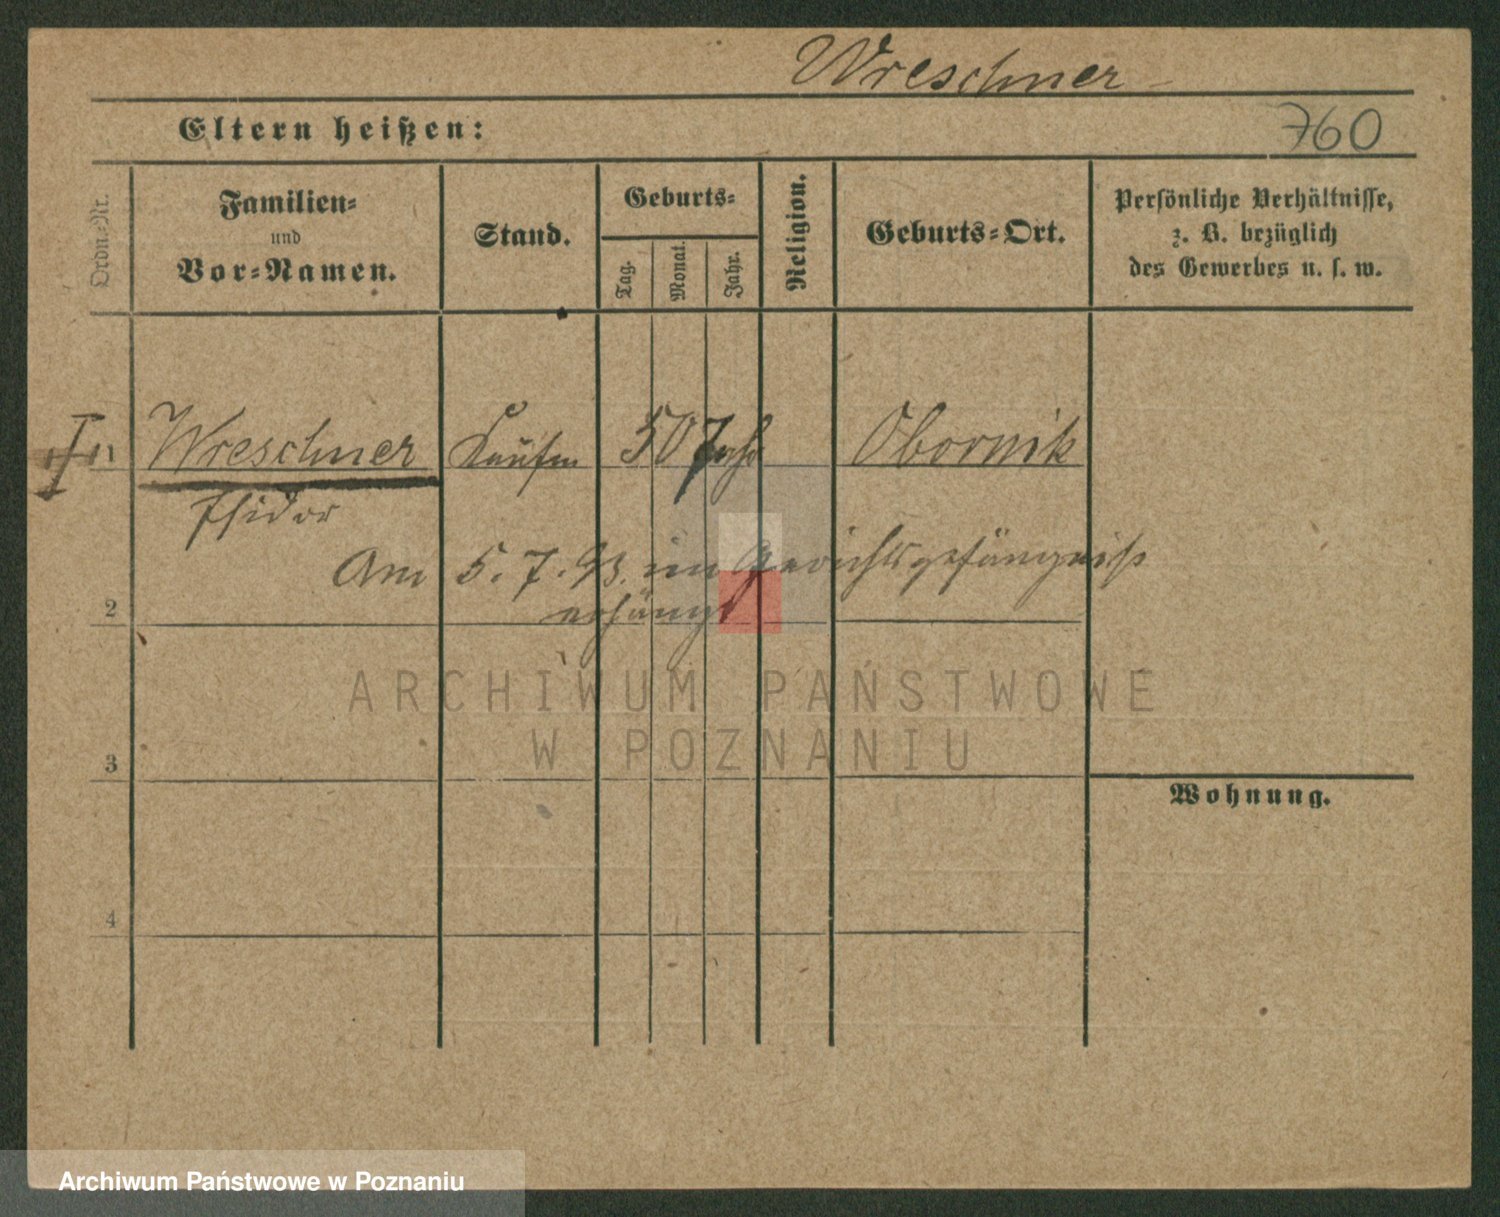 Wreschner
Eltern heißen:
760
Ordn.-Nr.
Familien-
und
Vor-Namen.
Stand.
Geburts-
Tag.
Monat.
Jahr.
Religion.
Geburts-Ort.
Persönliche Verhältnisse,
z. B. bezüglich
des Gewerbes u. s. w.
1 Wreschner 50 Jahr Obornik
Isidor
Am 5. 7. 93. im Gerichtsgefängniß
2 erhängt
ARCHIWUM PAŃSTWOWE
W POZNANIU
3
Wohnung.
4
Archiwum Państwowe w Poznaniu